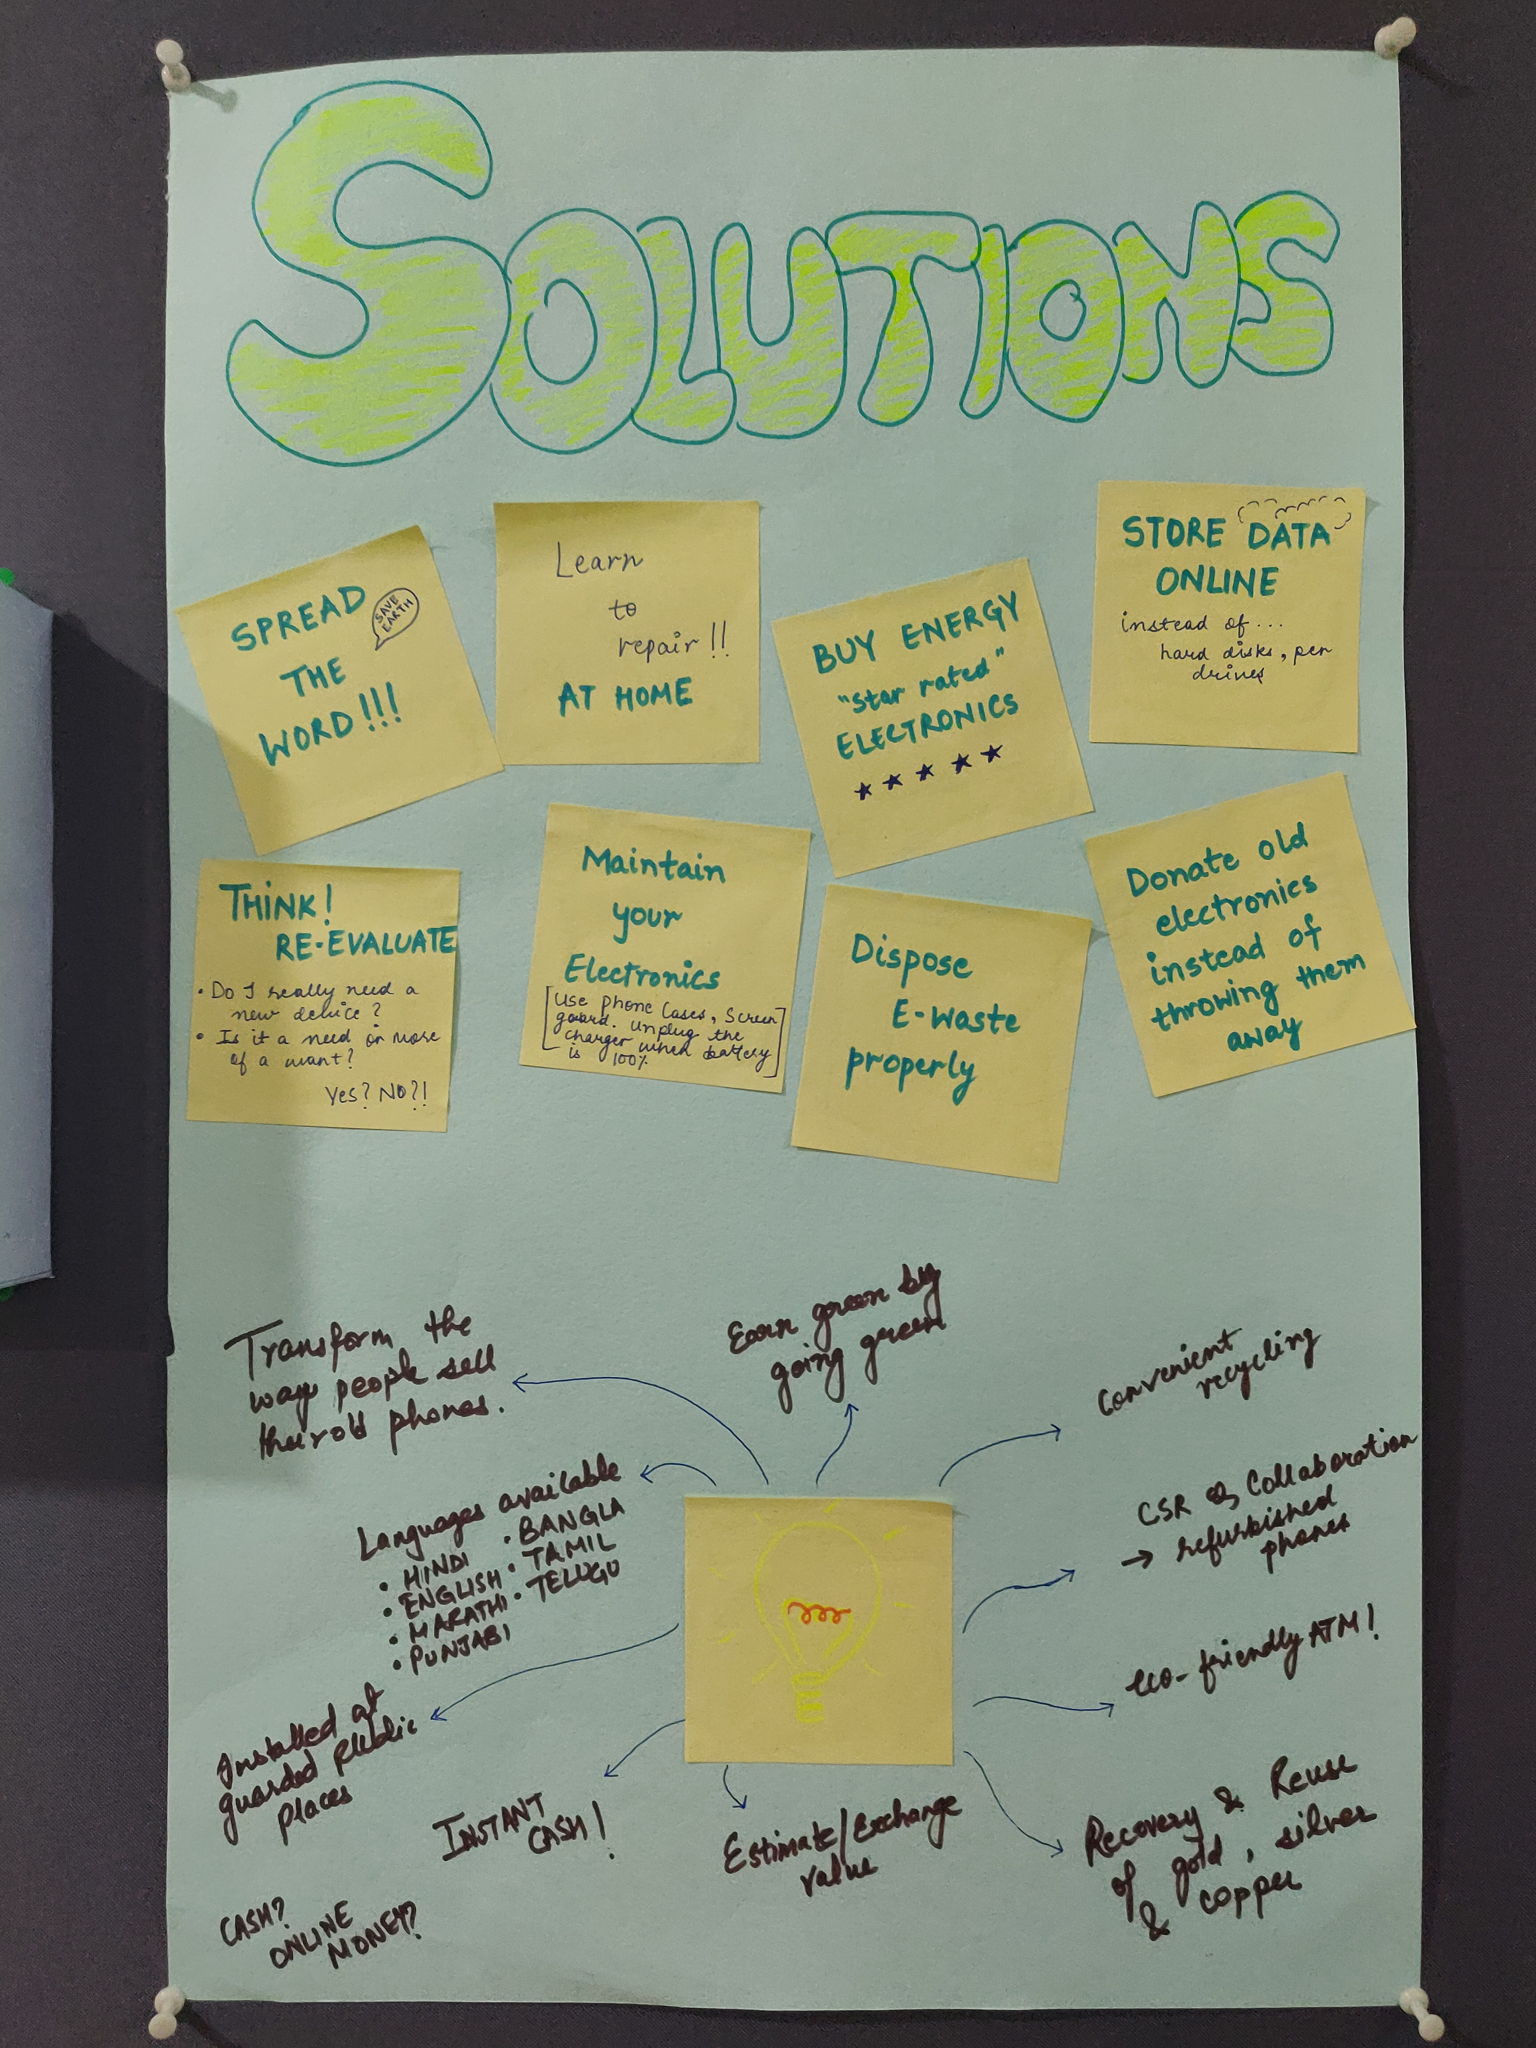 SOLUTIONS
SPREAD
THE
WORD!!!
SAVE
EARTH
Learn
to
repair!!
AT HOME
BUY ENERGY
"Star rated"
ELECTRONICS
STORE DATA
ONLINE
instead of...
hard disks, pen
drives
THINK!
RE-EVALUATE
• Do I really need a
new device?
• Is it a need or more
of a want?
Yes? NO?!
Maintain
your
Electronics
[Use phone cases, screen
guard. unplug the
charger when battery
is 100%]
Dispose
E-waste
properly
Donate old
electronics
instead of
throwing them
away
Transform the
way people sell
their old phones.
Earn green by
going green
Convenient
recycling
Languages available
• HINDI • BANGLA
• ENGLISH • TAMIL
• MARATHI • TELUGU
• PUNJABI
CSR Collaboration
→ refurbished
phones
eco-friendly ATM!
Installed at
guarded public
places
INSTANT
CASH!
Estimate/Exchange
value
Recovery & Reuse
of gold, silver
& copper
CASH?
ONLINE
MONEY?